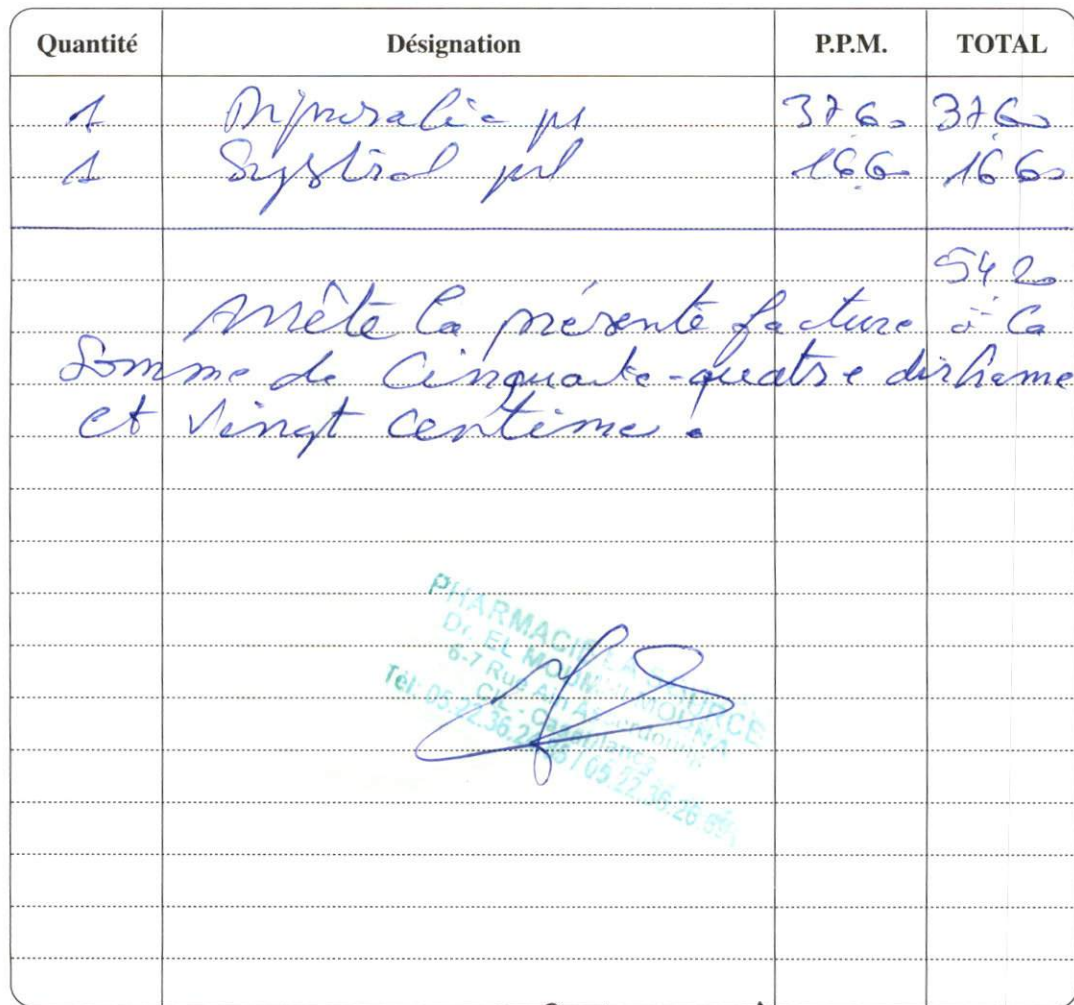 Quantité Désignation P.P.M. TOTAL
1 37 60 37 60
1 Systral 16 60 16 60
54 20
Arrête la présente facture à la
Somme de Cinquante-quatre dirhame
et Vingt centime.
PHARMACIE LA SOURCE
Dr. EL MOUMNI MOUNA
6-7 Rue Ain Asserdoune
CIL - Casablanca
Tél: 05.22.36. / 05.22.36.26